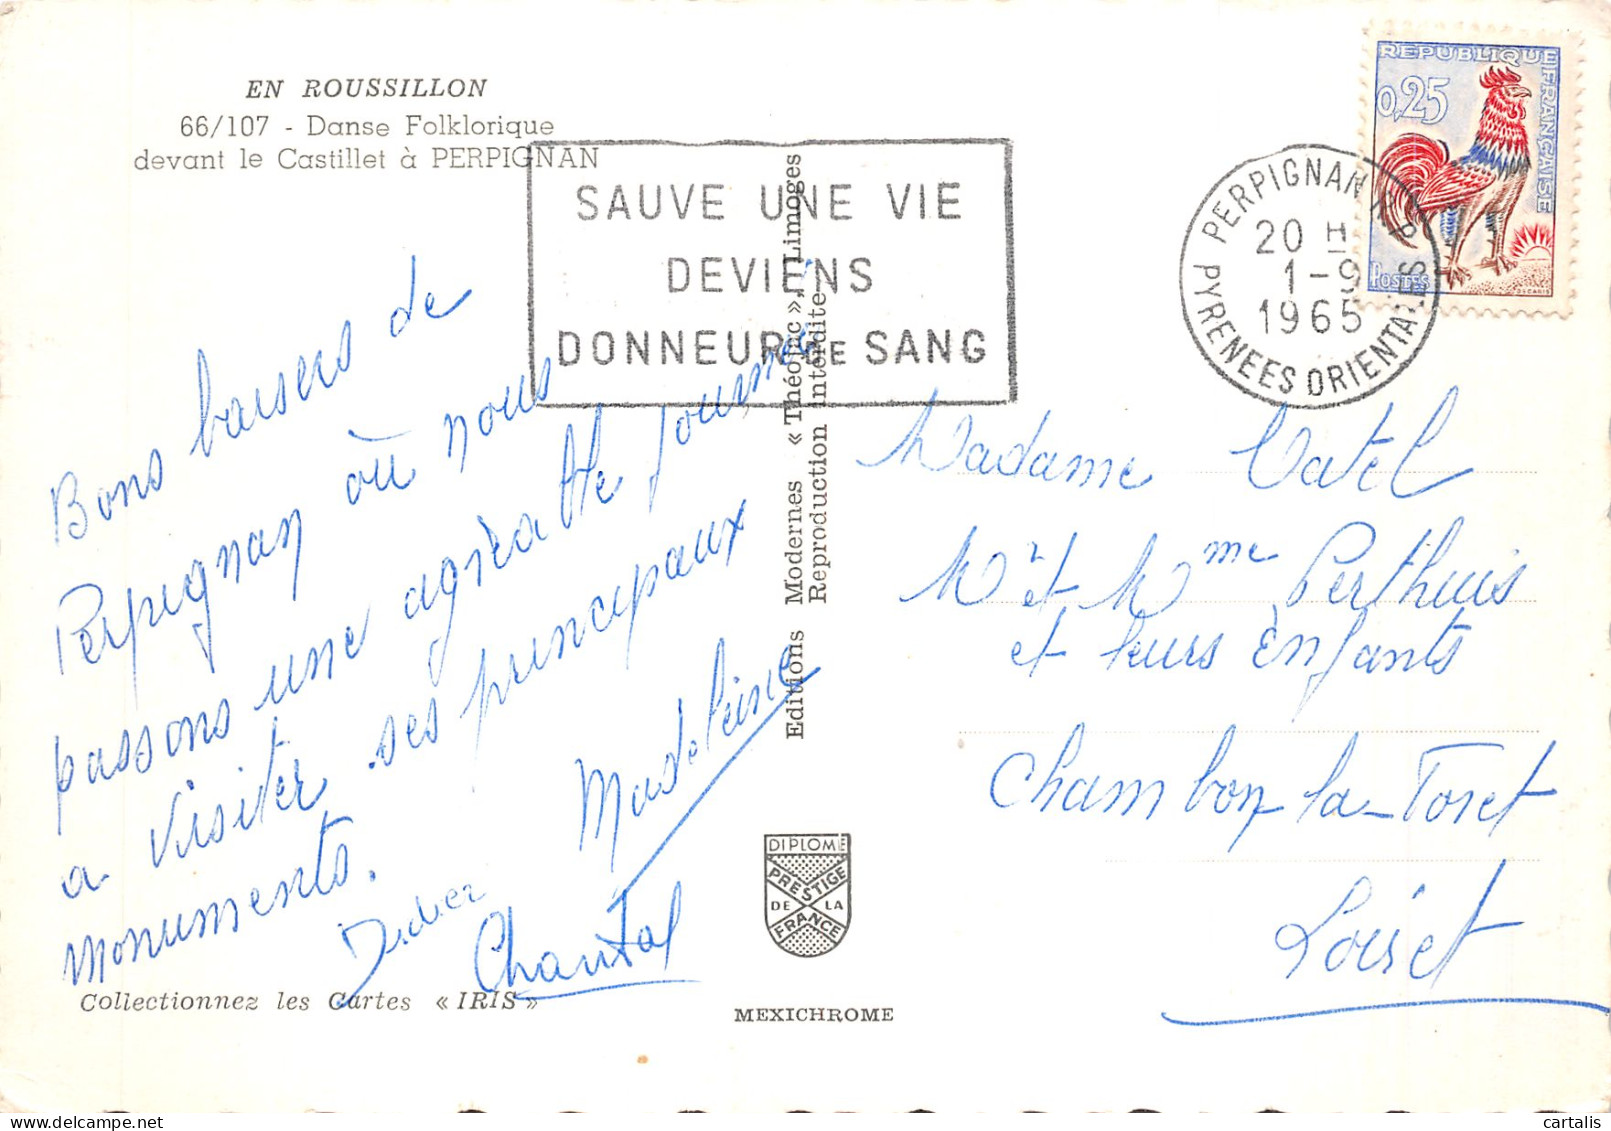 EN ROUSSILLON
66/107 - Danse Folklorique
devant le Castillet à PERPIGNAN
SAUVE UNE VIE
DEVIENS
DONNEUR DE SANG
PERPIGNAN R.P.
20 H
1-9
1965
PYRENEES ORIENTALES
REPUBLIQUE FRANÇAISE
0,25
POSTES
DECARIS
Bons baisers de
Perpignan où nous
passons une agréable journée
a visiter ses principaux
monuments.
Madeleine
Didier
Chantal
Editions Modernes « Théojac », Limoges
Reproduction interdite
Madame Catel
Mr et Mme Perthuis
et leurs Enfants
Chambon-la-Foret
Loiret
DIPLOME
PRESTIGE
DE LA
FRANCE
Collectionnez les Cartes « IRIS »
MEXICHROME
cartalis
www.delcampe.net